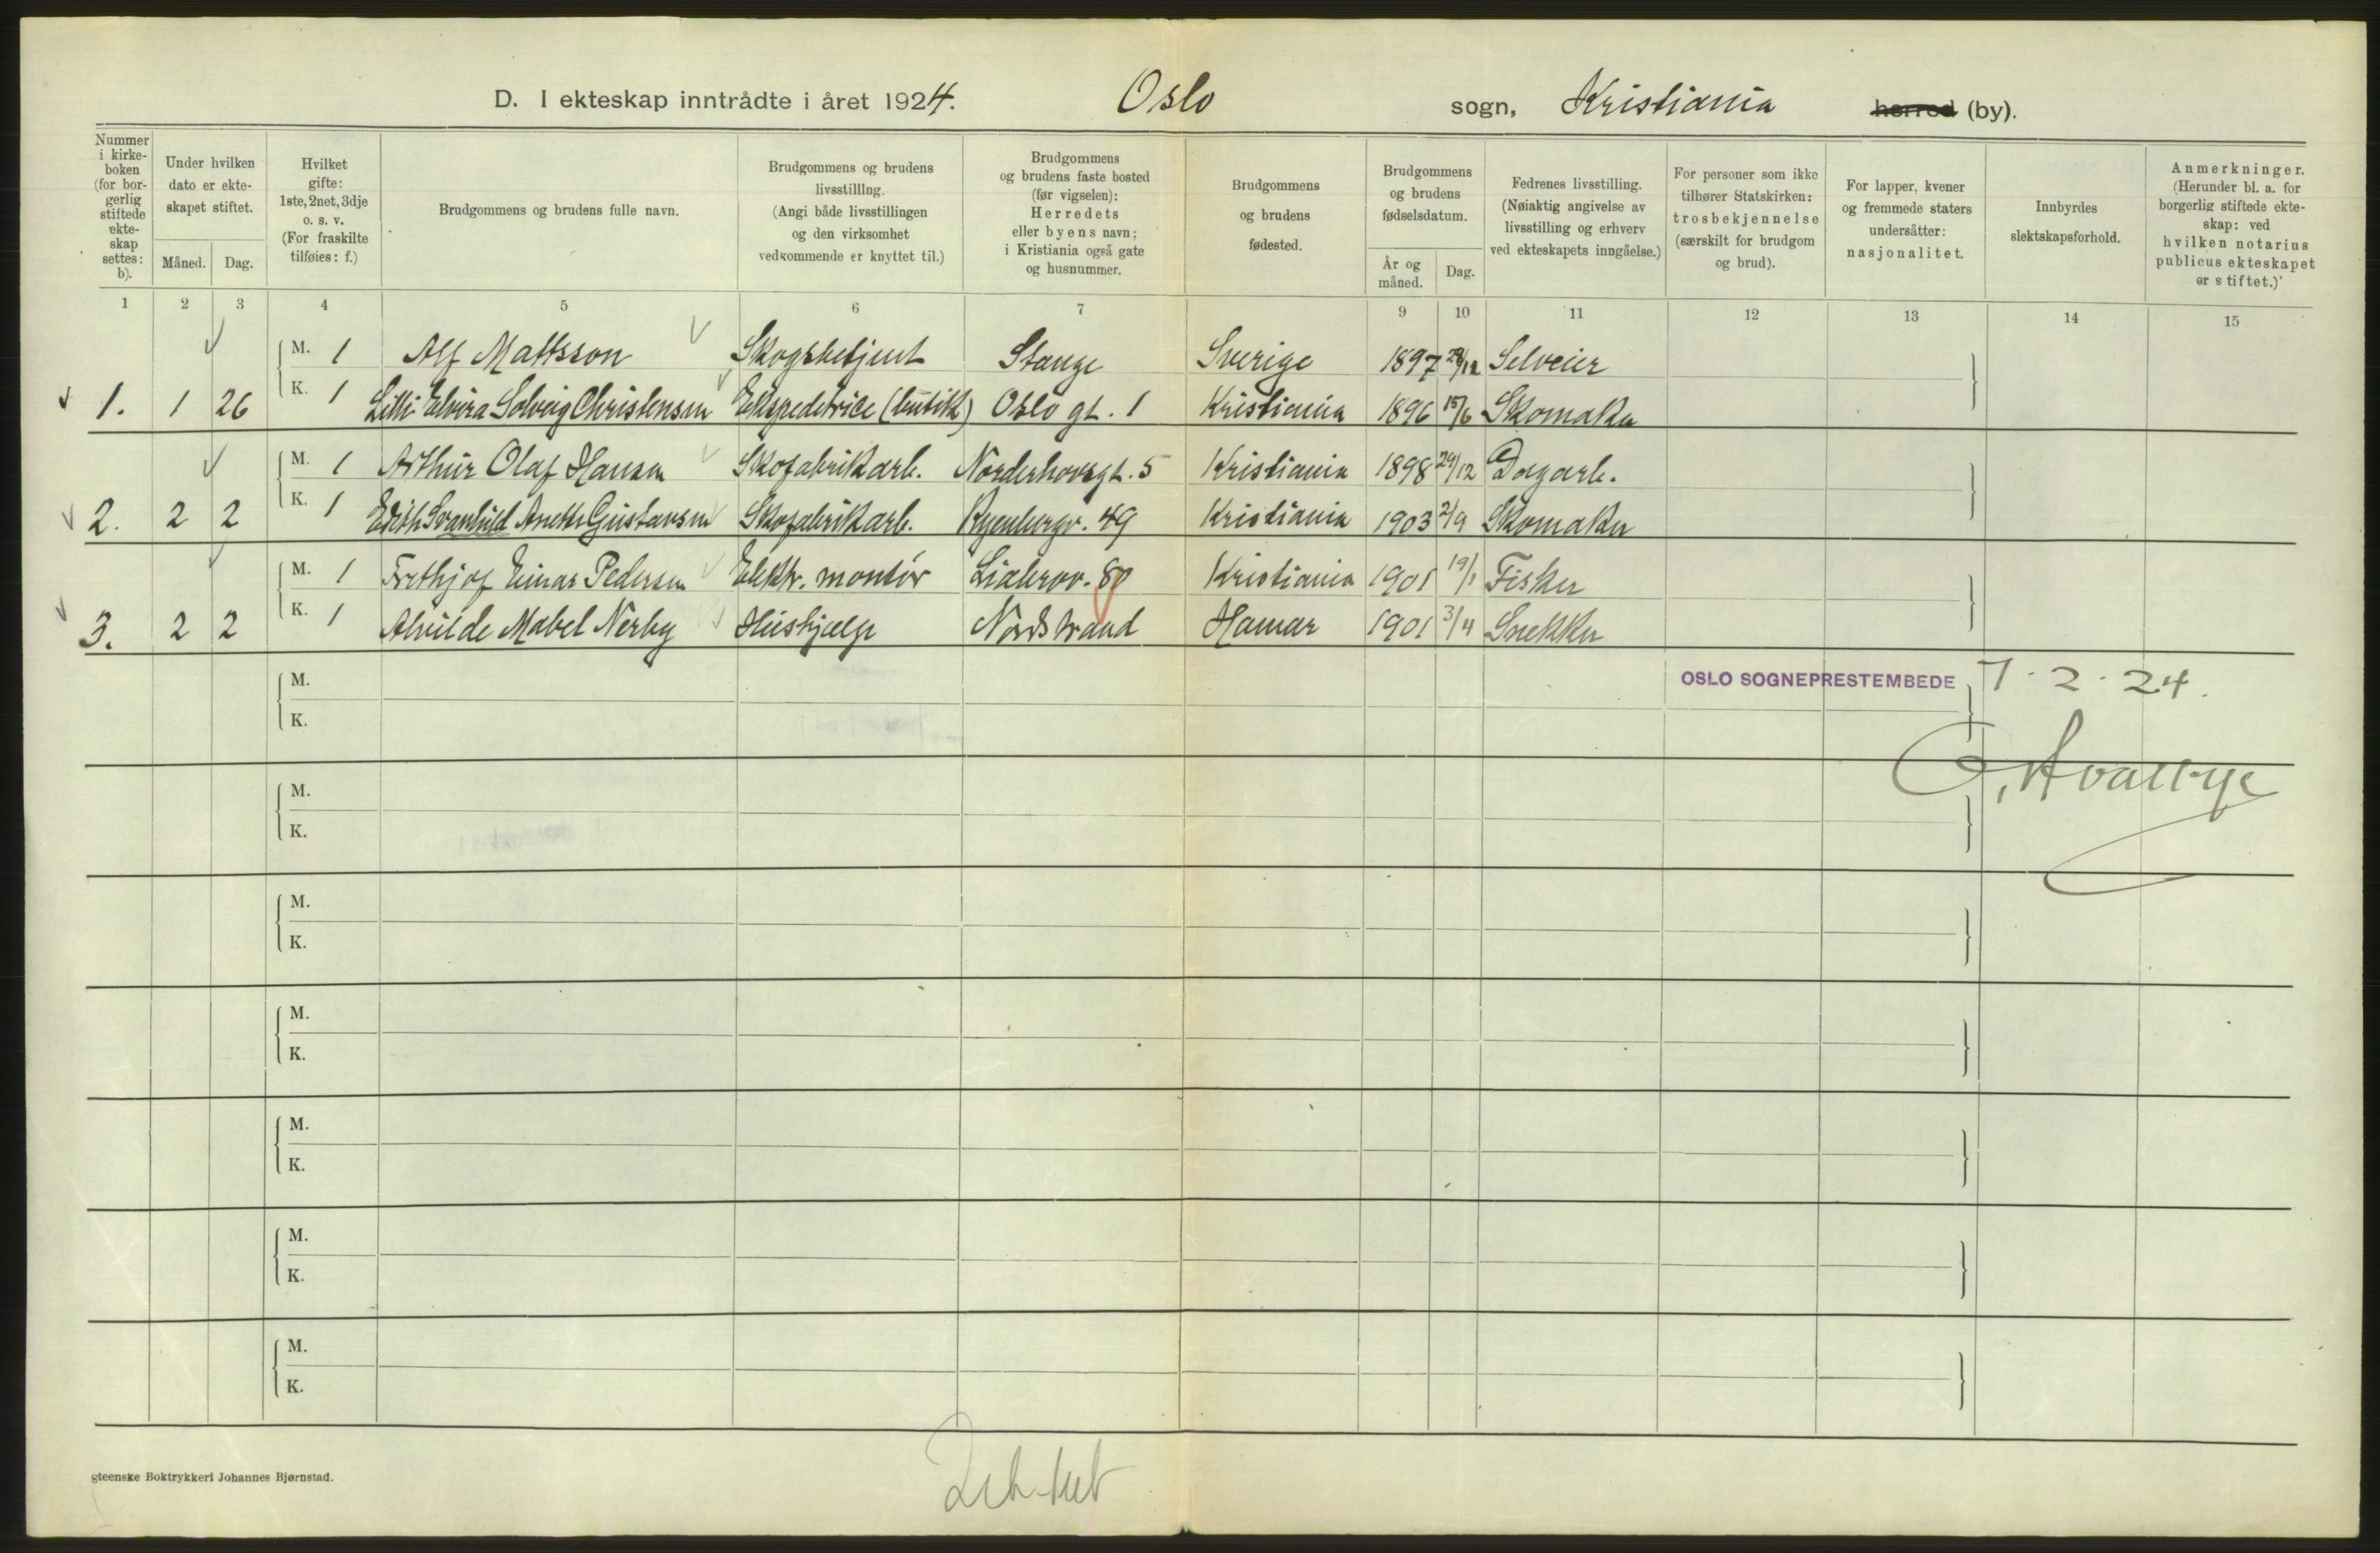 D. I ekteskap inntrådte i året 1924. Oslo sogn, Kristiania herred (by).
Nummer i kirkeboken (for borgerlig stiftede ekteskap settes: b).
Under hvilken dato er ekteskapet stiftet.
Måned. Dag.
Hvilket gifte: 1ste, 2net, 3dje o. s. v. (For fraskilte tilføies: f.)
Brudgommens og brudens fulle navn.
Brudgommens og brudens livsstilling. (Angi både livsstillingen og den virksomhet vedkommende er knyttet til.)
Brudgommens og brudens faste bosted (før vigselen): Herredets eller byens navn; i Kristiania også gate og husnummer.
Brudgommens og brudens fødested.
Brudgommens og brudens fødselsdatum.
År og måned. Dag.
Fedrenes livsstilling. (Nøiaktig angivelse av livsstilling og erhverv ved ekteskapets inngåelse.)
For personer som ikke tilhører Statskirken: trosbekjennelse (særskilt for brudgom og brud).
For lapper, kvener og fremmede staters undersåtter: nasjonalitet.
Innbyrdes slektskapsforhold.
Anmerkninger. (Herunder bl. a. for borgerlig stiftede ekteskap: ved hvilken notarius publicus ekteskapet er stiftet.)
1 2 3 4 5 6 7 9 10 11 12 13 14 15
M. 1 Alf Mattsson Skogsbetjent Stange Sverige 1897 28/12 Selveier
1. 1 26 K. 1 Lilli Elvira Solveig Christensen Ekspeditrice (butik) Oslo gt. 1 Kristiania 1896 15/6 Skomaker
M. 1 Arthur Olaf Hansen Skofabrikarb. Norderhovsgt. 5 Kristiania 1898 29/12 Dagarb.
2. 2 2 K. 1 Edith Svanhild Anette Gustavsen Skofabrikarb. Ryenbergv. 49 Kristiania 1903 2/9 Skomaker
M. 1 Frithjof Einar Pedersen Elektr. montør Liabrov. 80 Kristiania 1901 19/1 Fisker
3. 2 2 K. 1 Alvilde Mabel Nerby Hushjælp Nordstrand Hamar 1901 3/4 Snekker
M. OSLO SOGNEPRESTEMBEDE, 7 . 2 . 24.
K.
M.
K.
M.
K.
M.
K.
M.
K.
M.
K.
M.
K.
Steenske Boktrykkeri Johannes Bjørnstad.